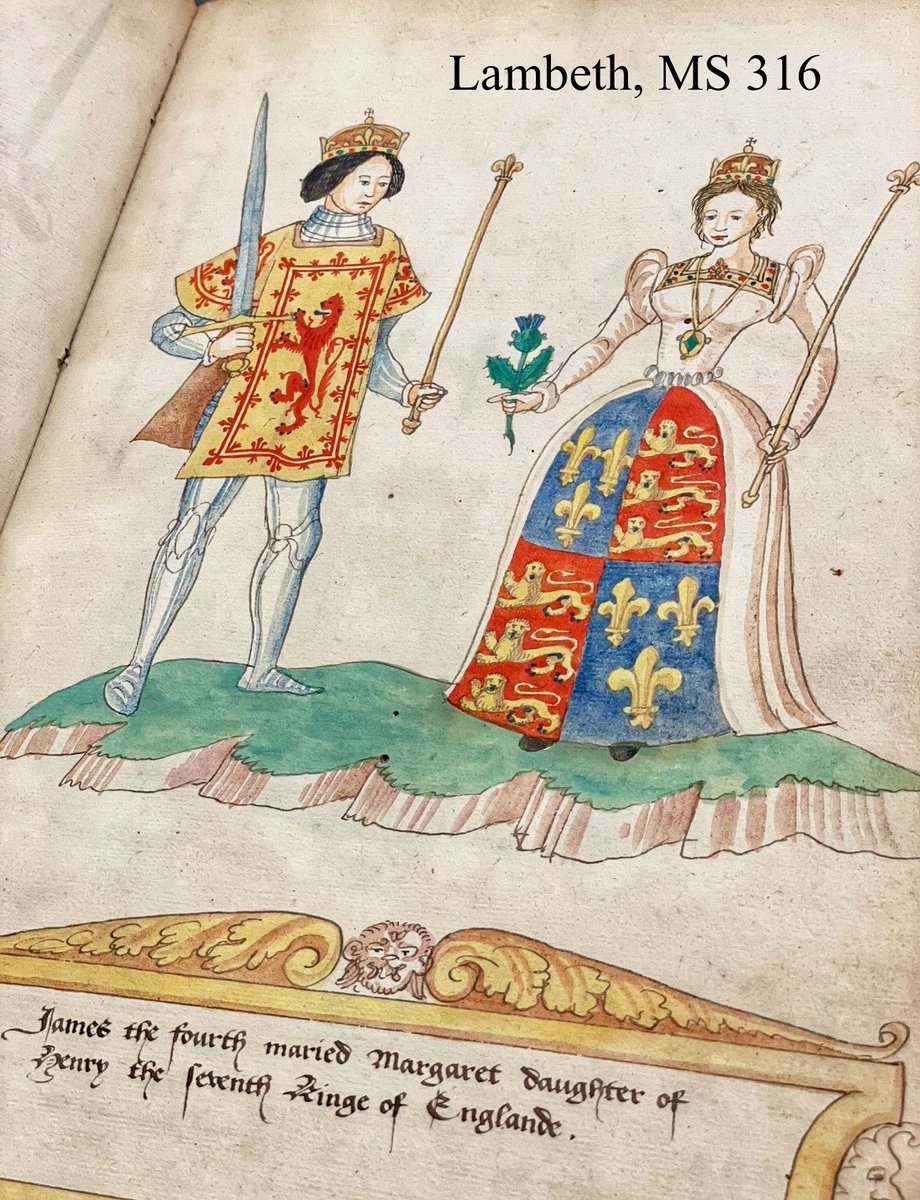 Lambeth, MS 316
James the fourth maried Margaret daughter of
Henry the seventh Kinge of Englande.